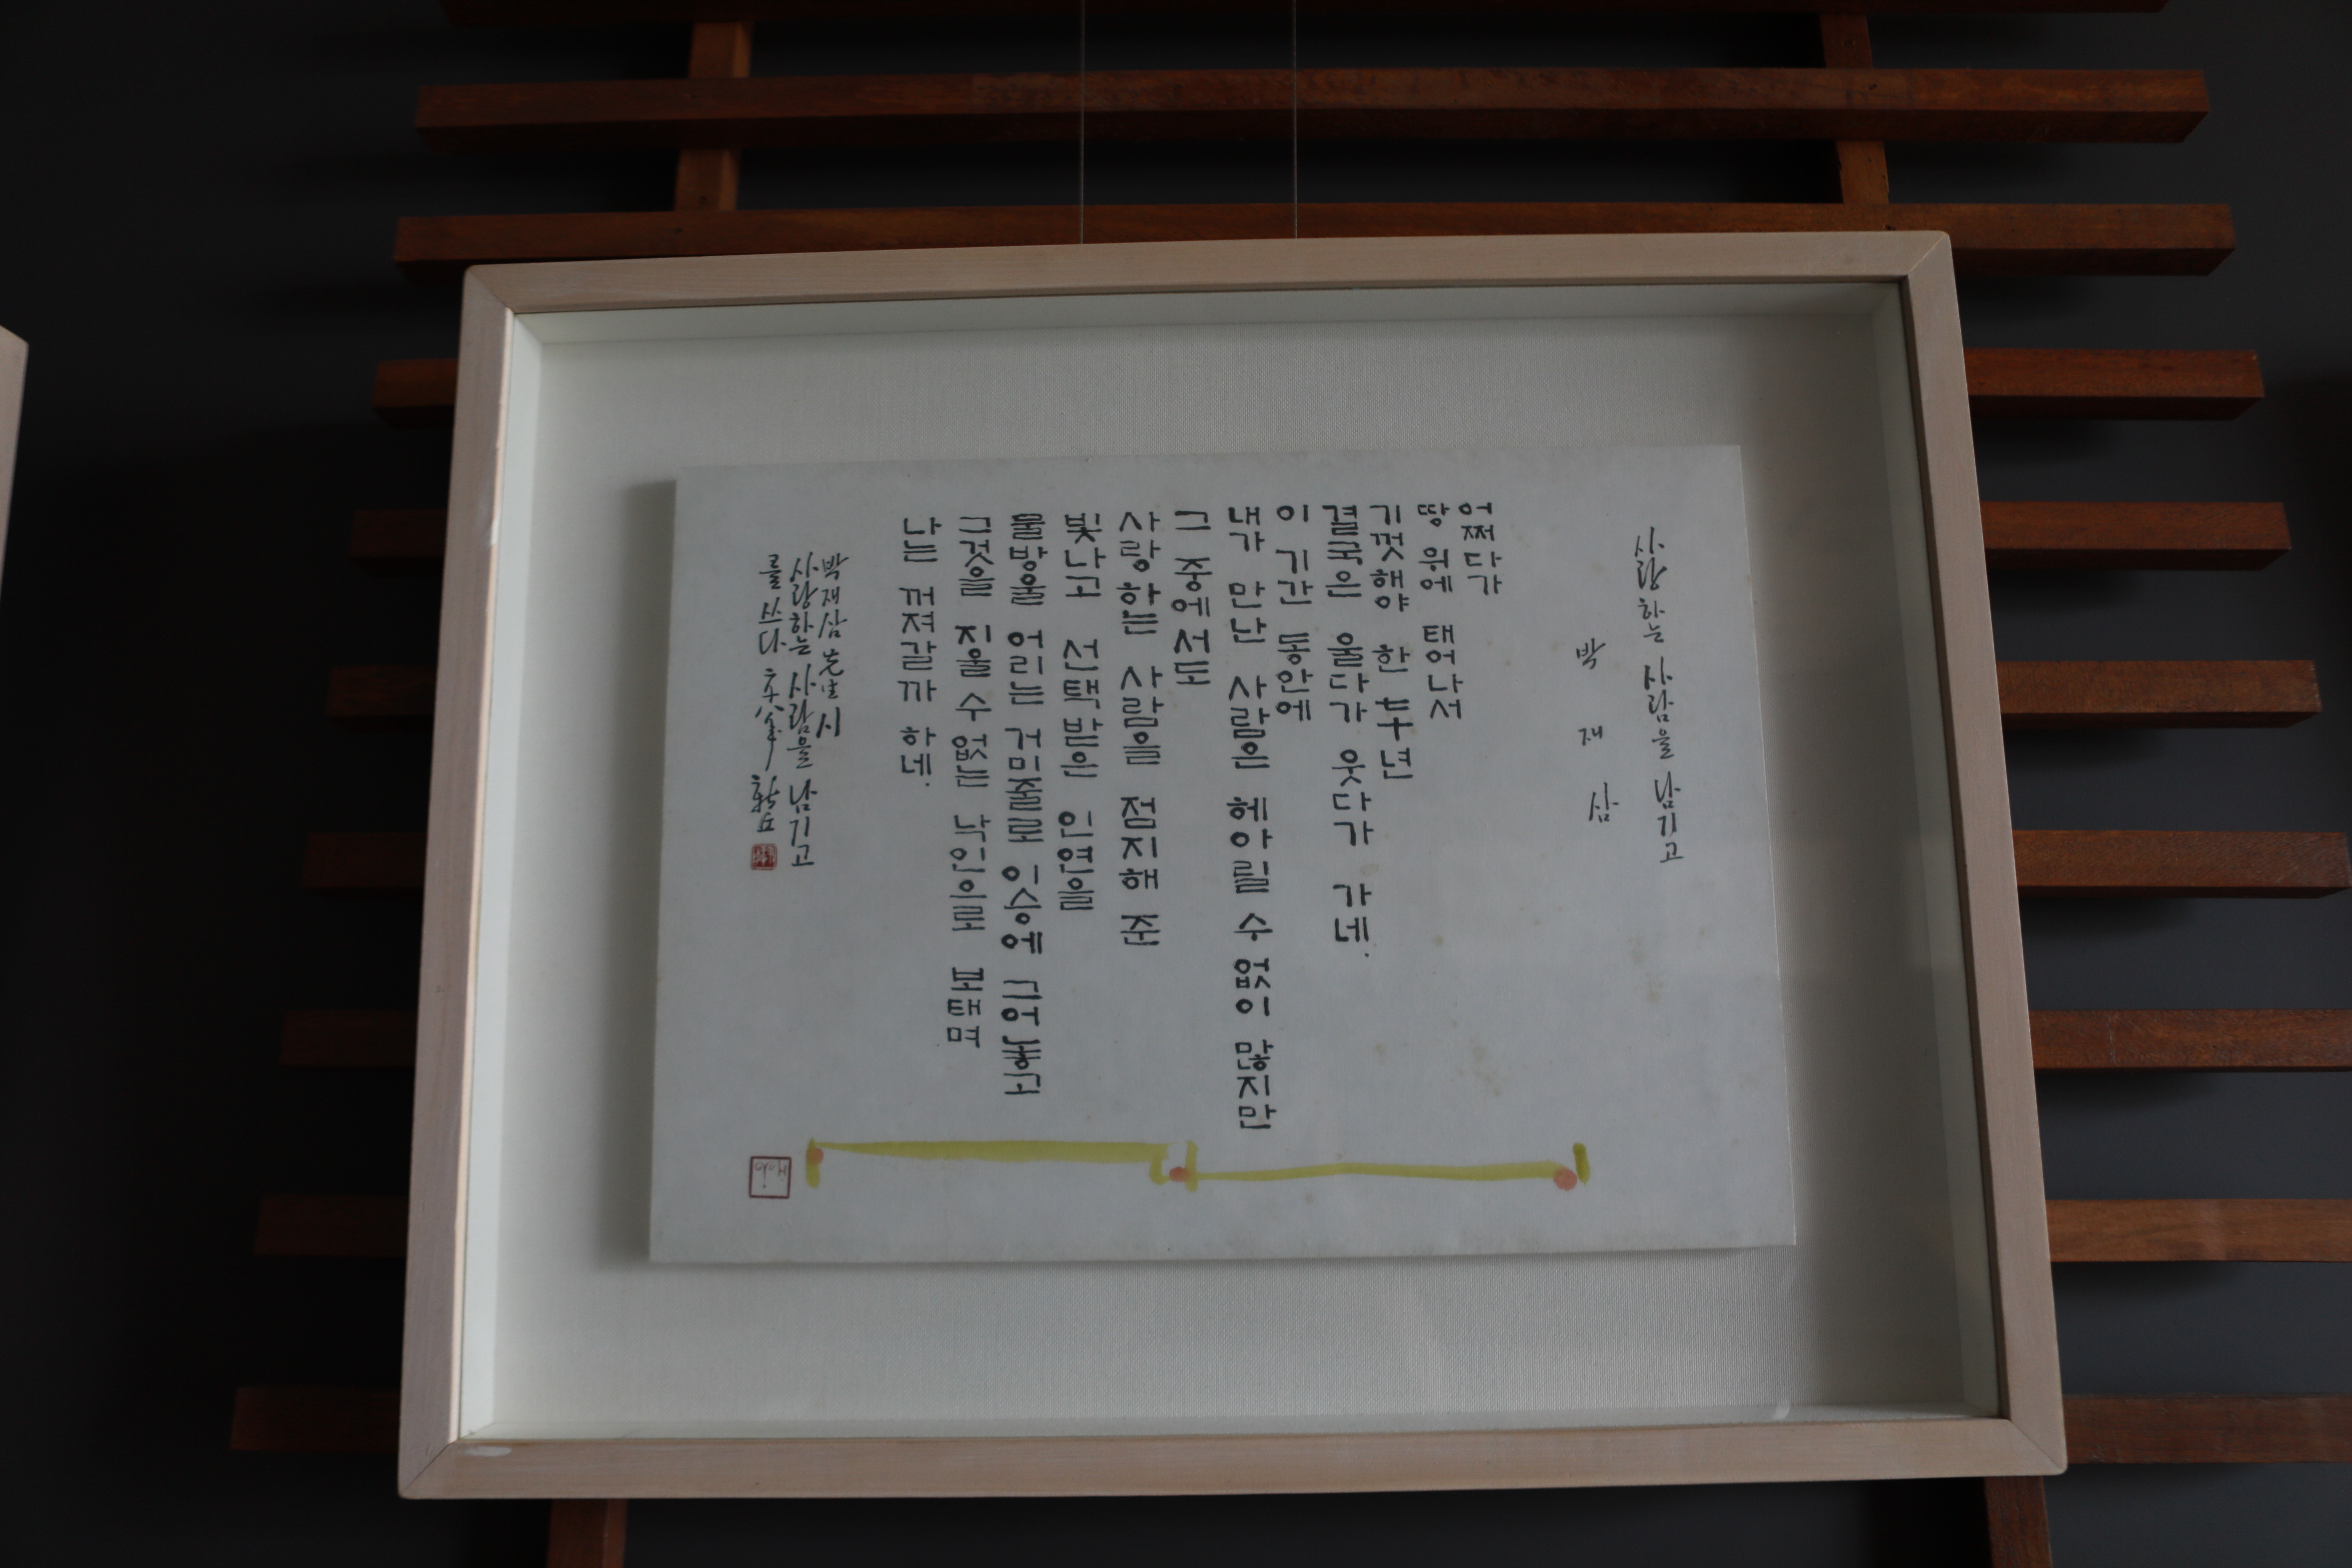 사랑하는 사람을 남기고
박재삼
어쩌다가
땅 위에 태어나서
기껏해야 한 七十년
결국은 울다가 웃다가 가네.
이 기간 동안에
내가 만난 사람은 헤아릴 수 없이 많지만
그 중에서도
사랑하는 사람을 점지해 준
빛나고 선택받은 인연을
물방울 어리는 거미줄로 이승에 그어 놓고
그것을 지울 수 없는 낙인으로 보태며
나는 꺼져갈까 하네.
박재삼 先生 시
사랑하는 사람을 남기고
를 쓰다